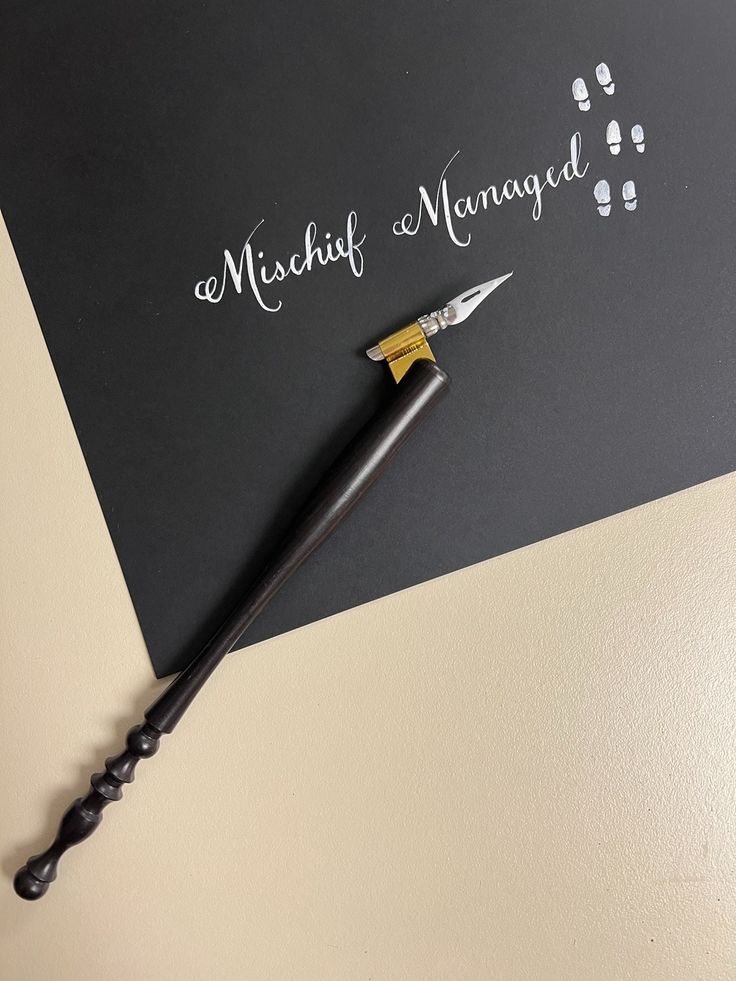 Mischief Managed